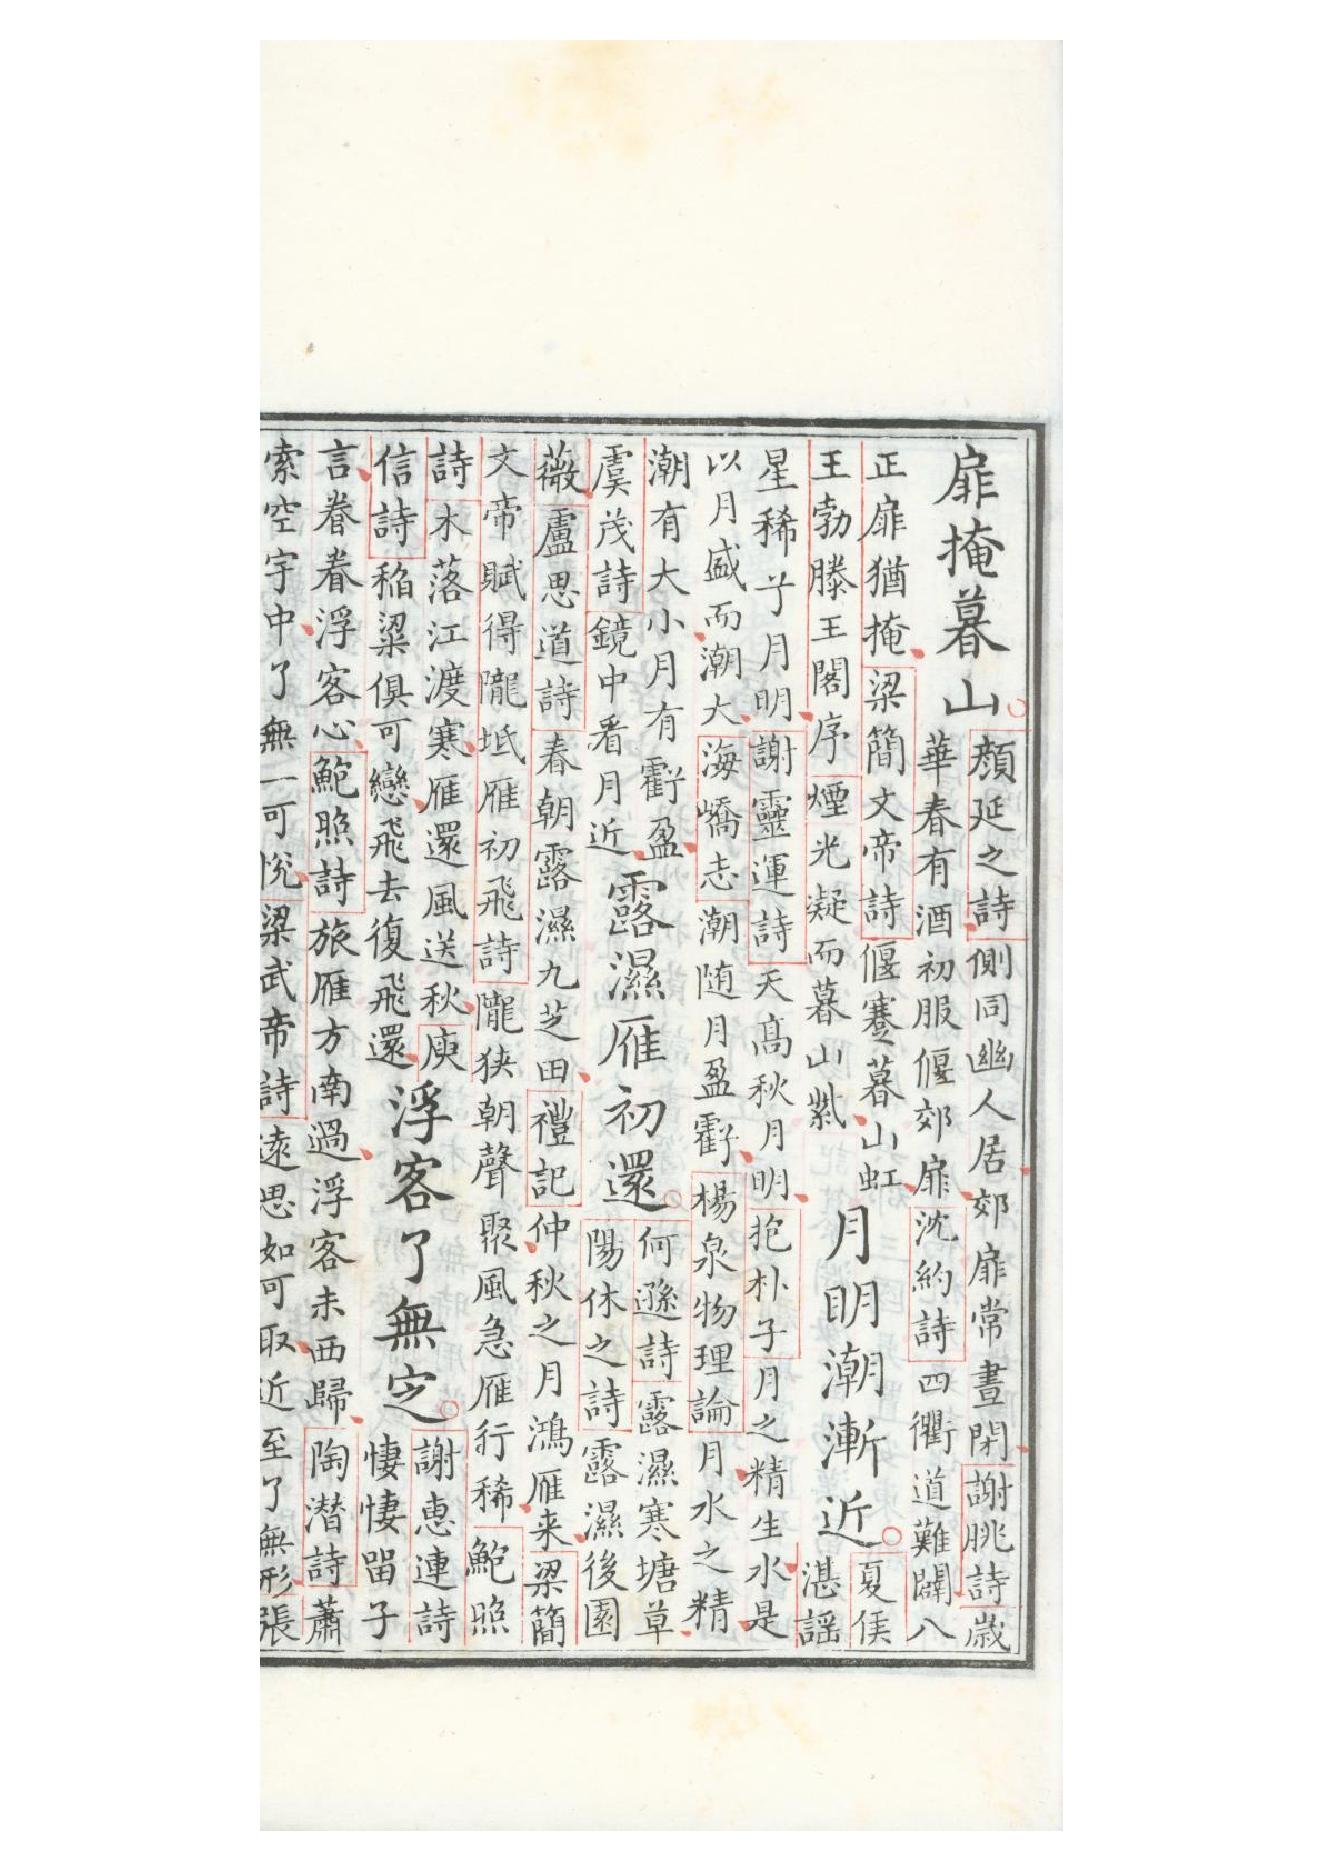 扉掩暮山
顏延之詩側同幽人居郊扉常晝閉謝朓詩歲
華春有酒初服偃郊扉沈約詩四衢道難闢八
正扉猶掩梁簡文帝詩偃蹇暮山虹
王勃滕王閣序煙光凝而暮山紫
月明潮漸近
夏侯
湛謡
星稀兮月明謝靈運詩天高秋月明抱朴子月之精生水是
以月盛而潮大海嶠志潮随月盈虧楊泉物理論月水之精
潮有大小月有虧盈
虞茂詩鏡中看月近
露濕雁初還
何遜詩露濕寒塘草
陽休之詩露濕後園
薇盧思道詩春朝露濕九芝田禮記仲秋之月鴻雁来梁簡
文帝賦得隴坻雁初飛詩隴狭朝聲聚風急雁行稀鮑照
詩木落江渡寒雁還風送秋庾
信詩稲粱俱可戀飛去復飛還
浮客了無定
謝惠連詩
悽悽留子
言眷眷浮客心鮑照詩旅雁方南過浮客未西歸陶潜詩蕭
索空宇中了無一可悅梁武帝詩遠思如可取近至了無形張